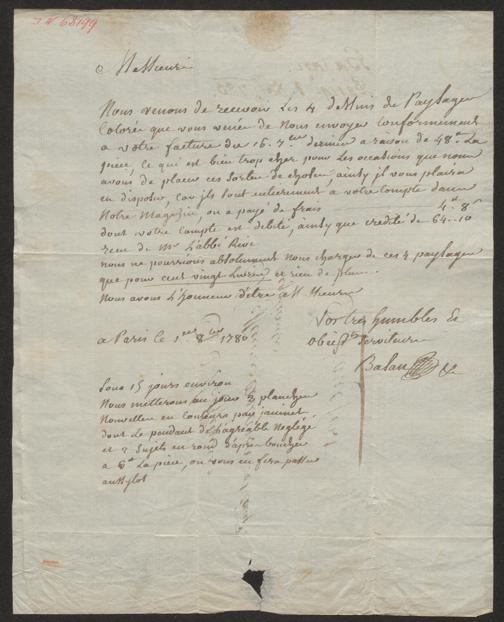 J N 68199
Messieurs
Nous venons de recevoir Les 4 dessins de Paysages
Colorée que vous venée de Nous envoyer Conformement
a votre facture du 16. 7.bre dernier a raison de 48.# La
piece, Ce qui est bien trop cher pour Les occations que nous
avons de placer ces sortes de choses, ainsy il vous plaira
en disposer, Car ils sont entierement a votre Compte dans
Notre Magazin, on a payé de frais 4.# 8.s
dont votre Compte est debité, ainsy que credité de 64..10
recu de Mr L'abbé Rive
nous ne pourrions absolument nous charger de ces 4 paysages
que pour cent vingt Livres et rien de plus.
Nous avons L'honneur d'etre Messieurs
a Paris le 1.er 8.bre 1780
Vos tres humbles &
obeis.ts Serviteurs
Basan & Ce
Sous 15 jours environ
Nous metterons au jour 3 planches
Nouvelles en Couleurs par janinet.
dont Le pendant de L'agréable Neglegé
et 2 Sujets en rond d'après boucher
a 6# La piece, on vous en fera passer
aussytot